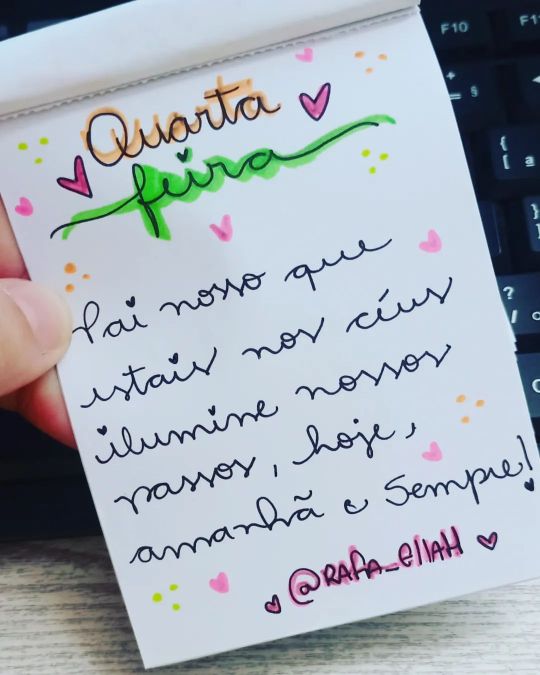 Quarta
feira
Pai nosso que
estais nos céus
ilumine nossos
passos, hoje,
amanhã e sempre!
@RAFA_ELLAH
F10
F11